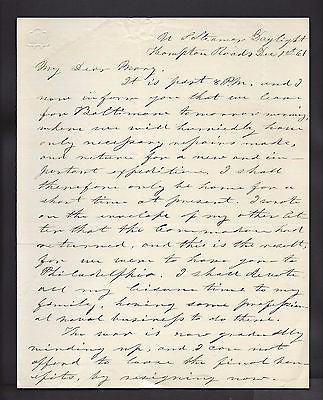 U S Steamer Daylight
Hampton Roads Dec 1st 61
My Dear Mary.
It is past 8 P.M. and I
now inform you that we leave
for Baltimore to morrow morng,
where we will hurriedly have
only necessary repairs made,
and return for a new and im-
portant expedition. I shall
therefore only be home for a
short time at present. I wrote
on the envelope of my other let
ter that the Commodore had
returned, and this is the result,
for we were to have you to
Philadelphia. I shall devote
all my leisure time to my
family, having some
naval business to do there.
The war is now gradually
winding up, and I can not
afford to lose the final ben-
efits, by resigning now.